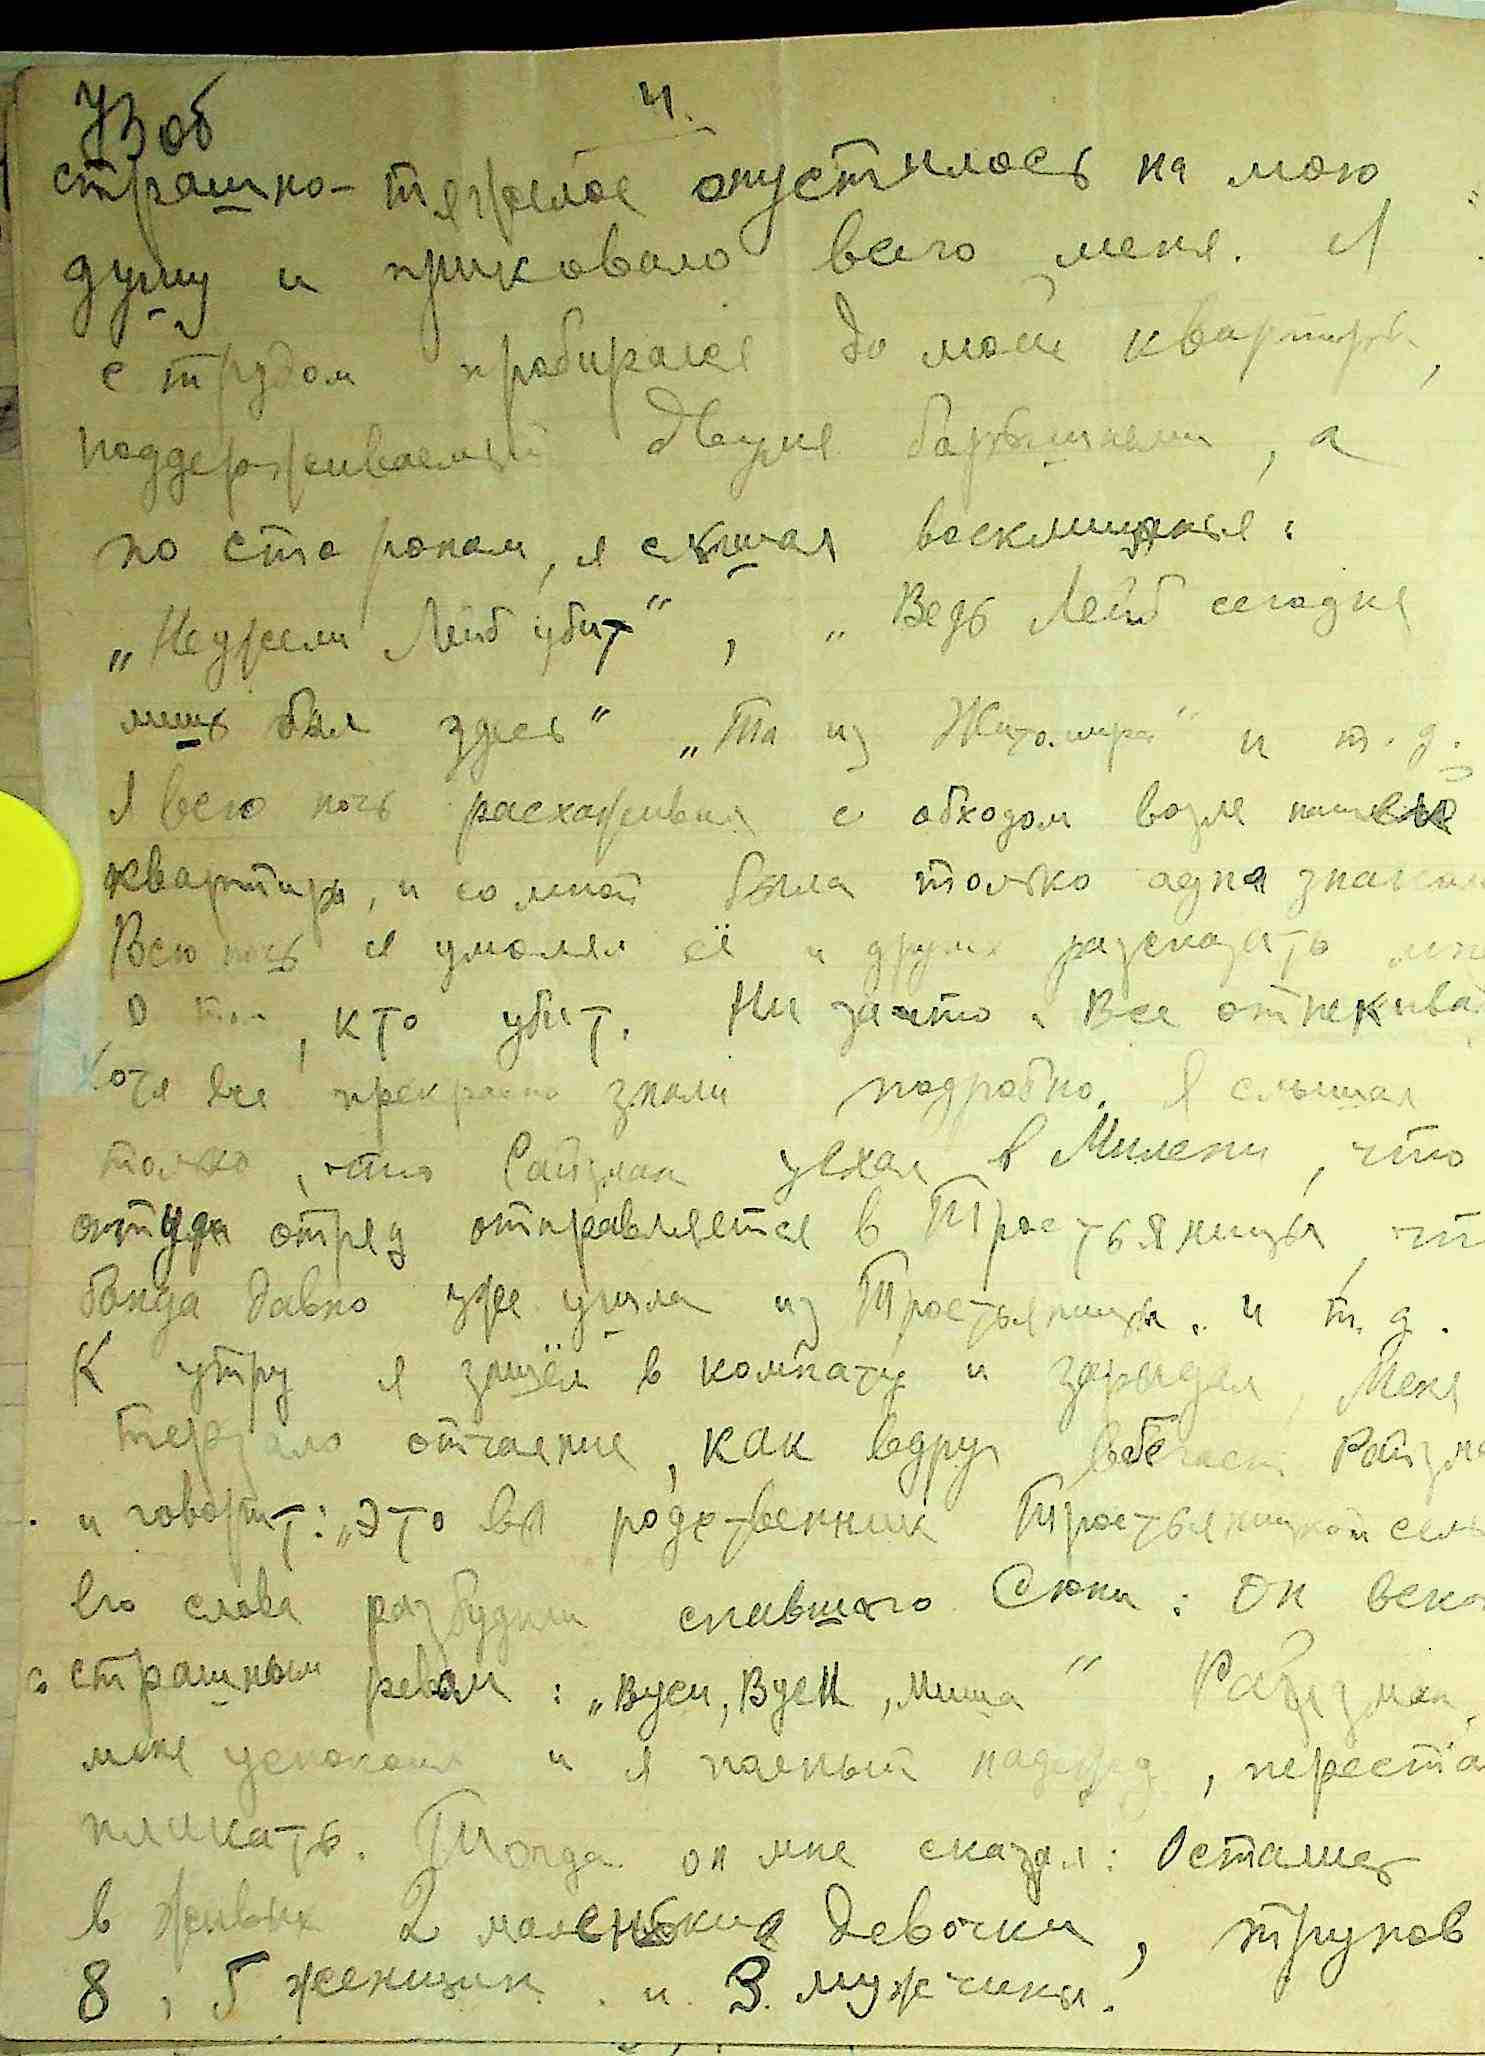 4.
страшно-тяжелое опустилось на мою
душу и приковало всего меня. Я
с трудом пробирался до моей квартиры,
поддерживаемый двумя барышнями, а
по сторонам, я слышал восклицанья:
„Неужели Лейб убит“, „Ведь Лейб сегодня
лишь был здесь“ „Та из Житомира“ и т.д.
Я всю ночь расхаживал с обходом возле нашей
квартиры, и со мной была только одна
Всю ночь я умолял её и других разсказать мне
о том, кто убит. Ни за что. Все
Хотя все прекрасно знали подробно. Я слышал
только, что Райзман уехал в Милени, что
оттуда отряд отправляется в Тростьяницы,
банда давно уже ушла из Тростьяницы. и т.д.
К утру я зашёл в комнату и зарыдал, Меня
терзало отчаяние, как вдруг вбегает
и говорит: „Это вы родственник Тростьяницкой
Его слова разбудили спавшего Сюни: Он
страшным ревом: „Вуси, Вуси, Миша“ Райзман,
меня успокоил и я полный надежд,
плакать. Тогда он мне сказал: Остались
в живых 2 маленькие девочки, трупов
8, 5 женщин и 3 мужчины.